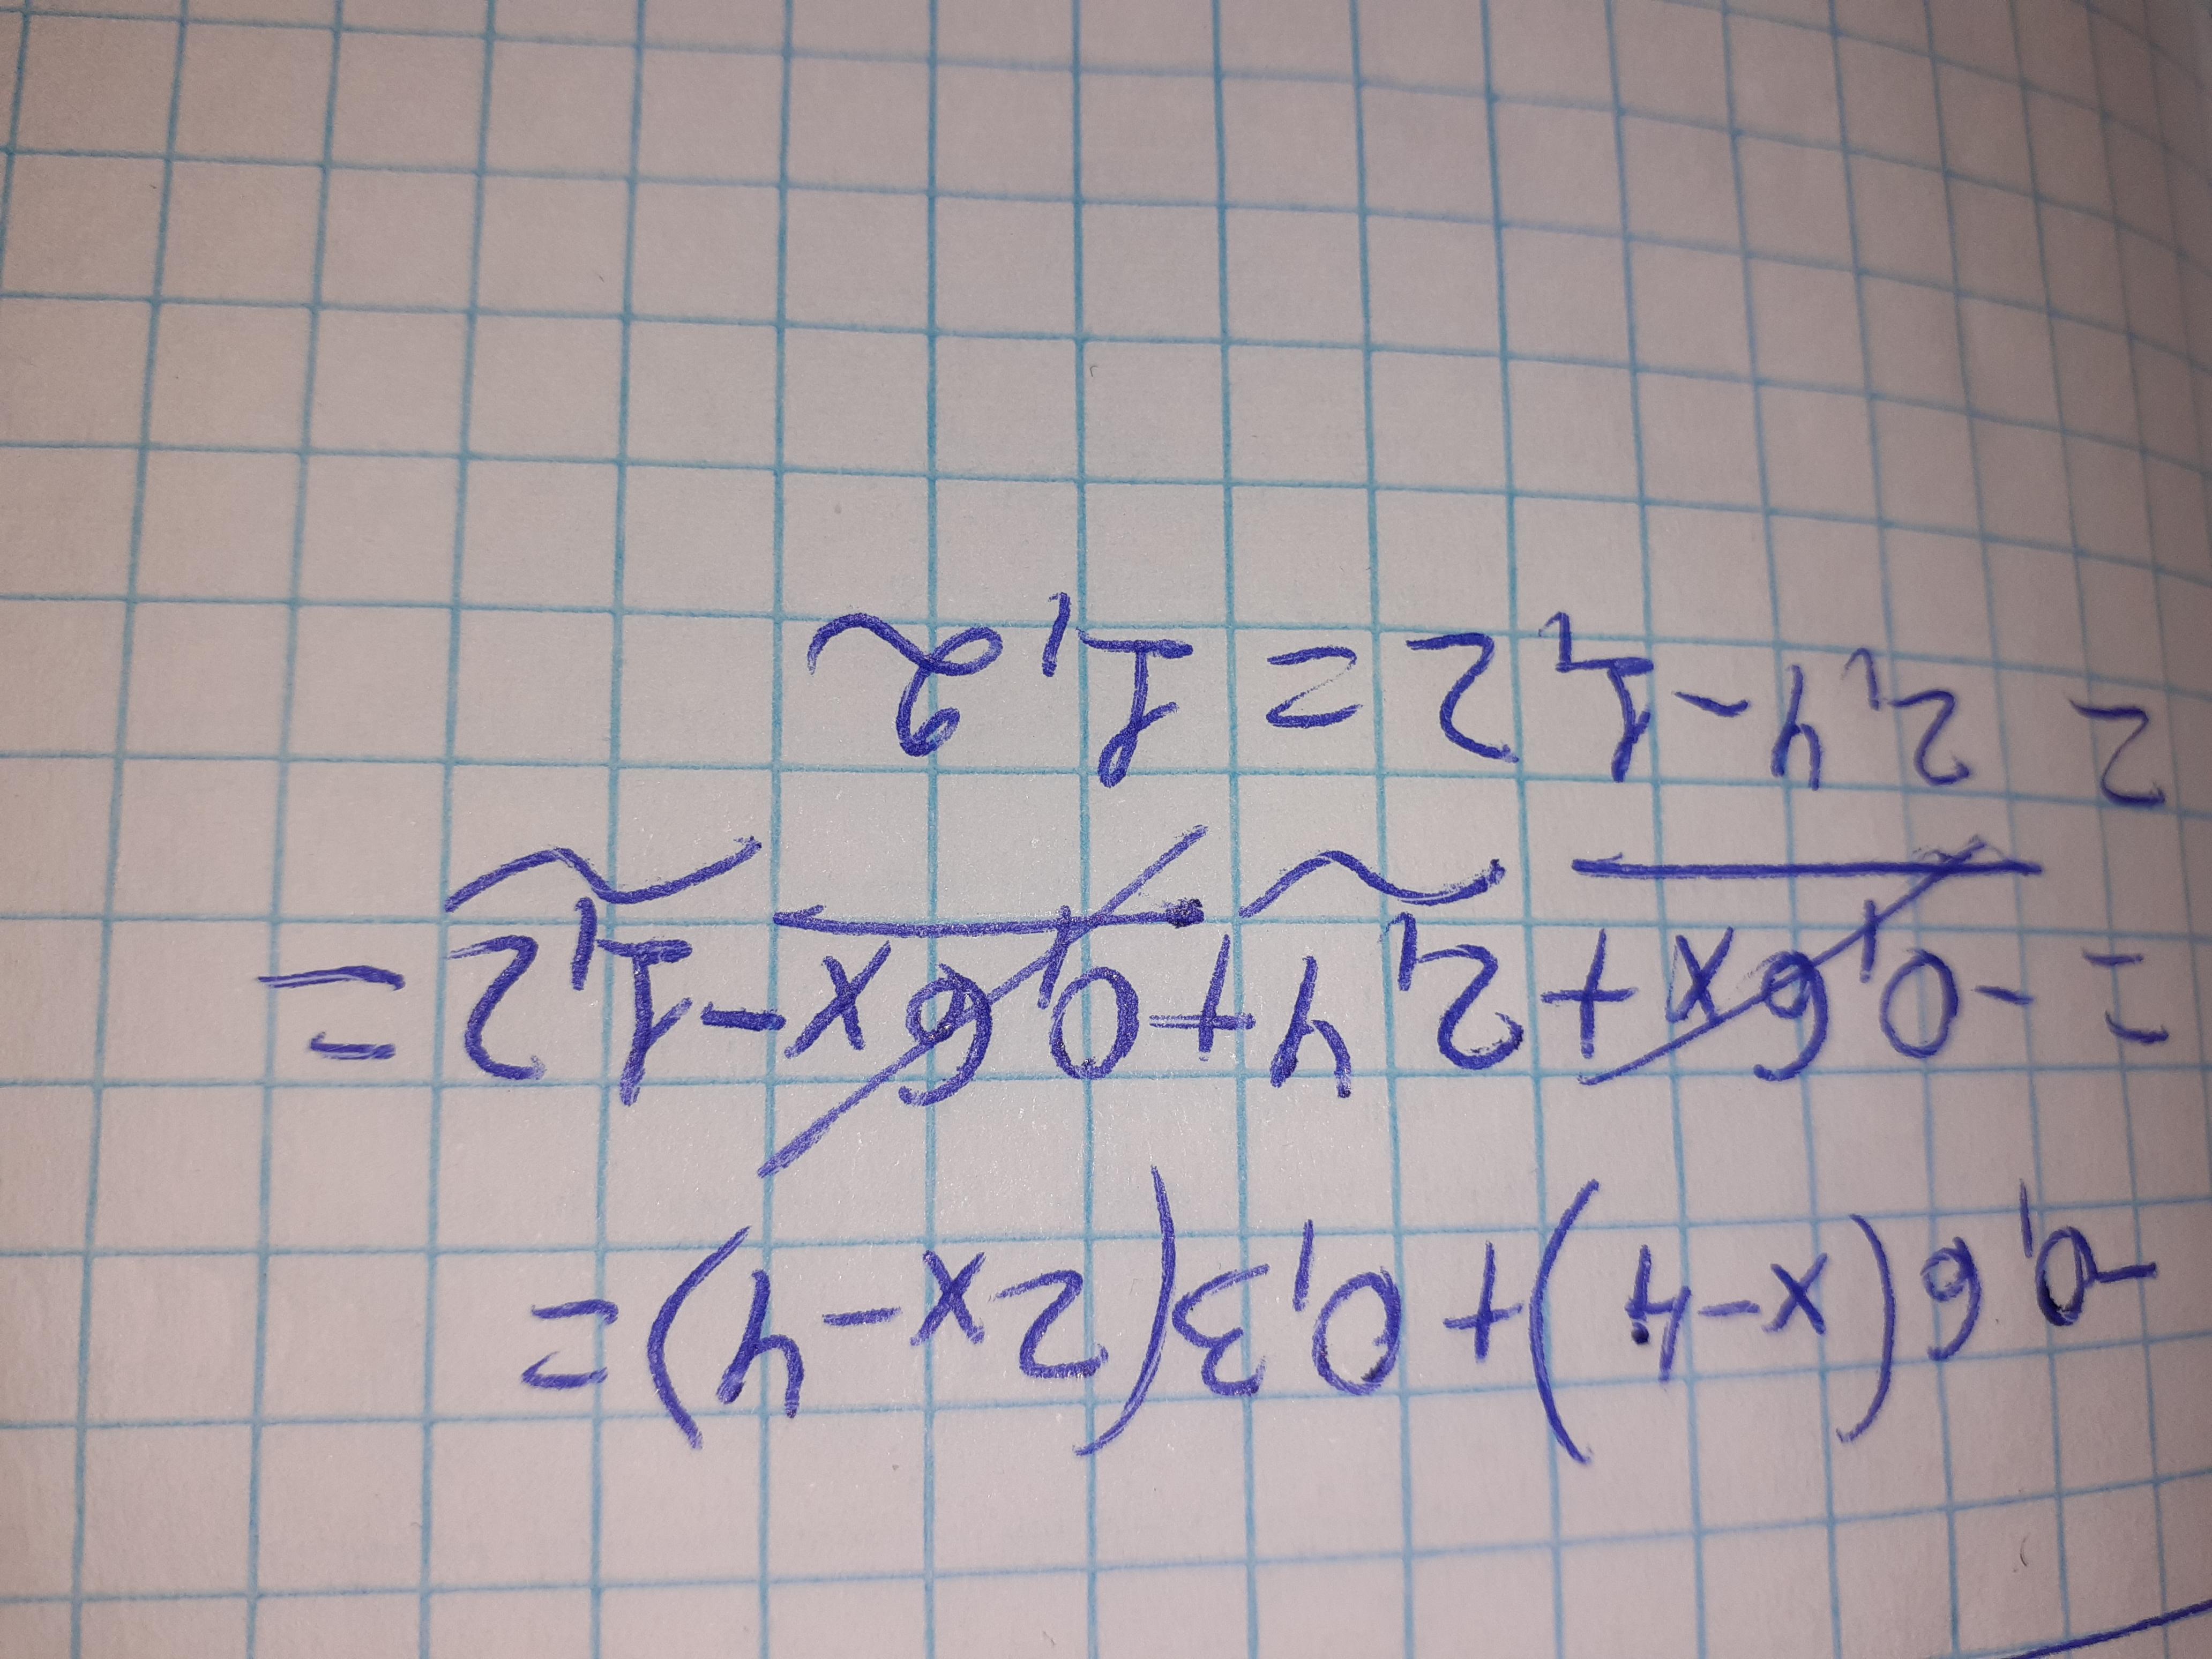 -0,6(x-4)+0,3(2x-4)=
= -0,6x+2,4+0,6x-1,2=
= 2,4-1,2=1,2